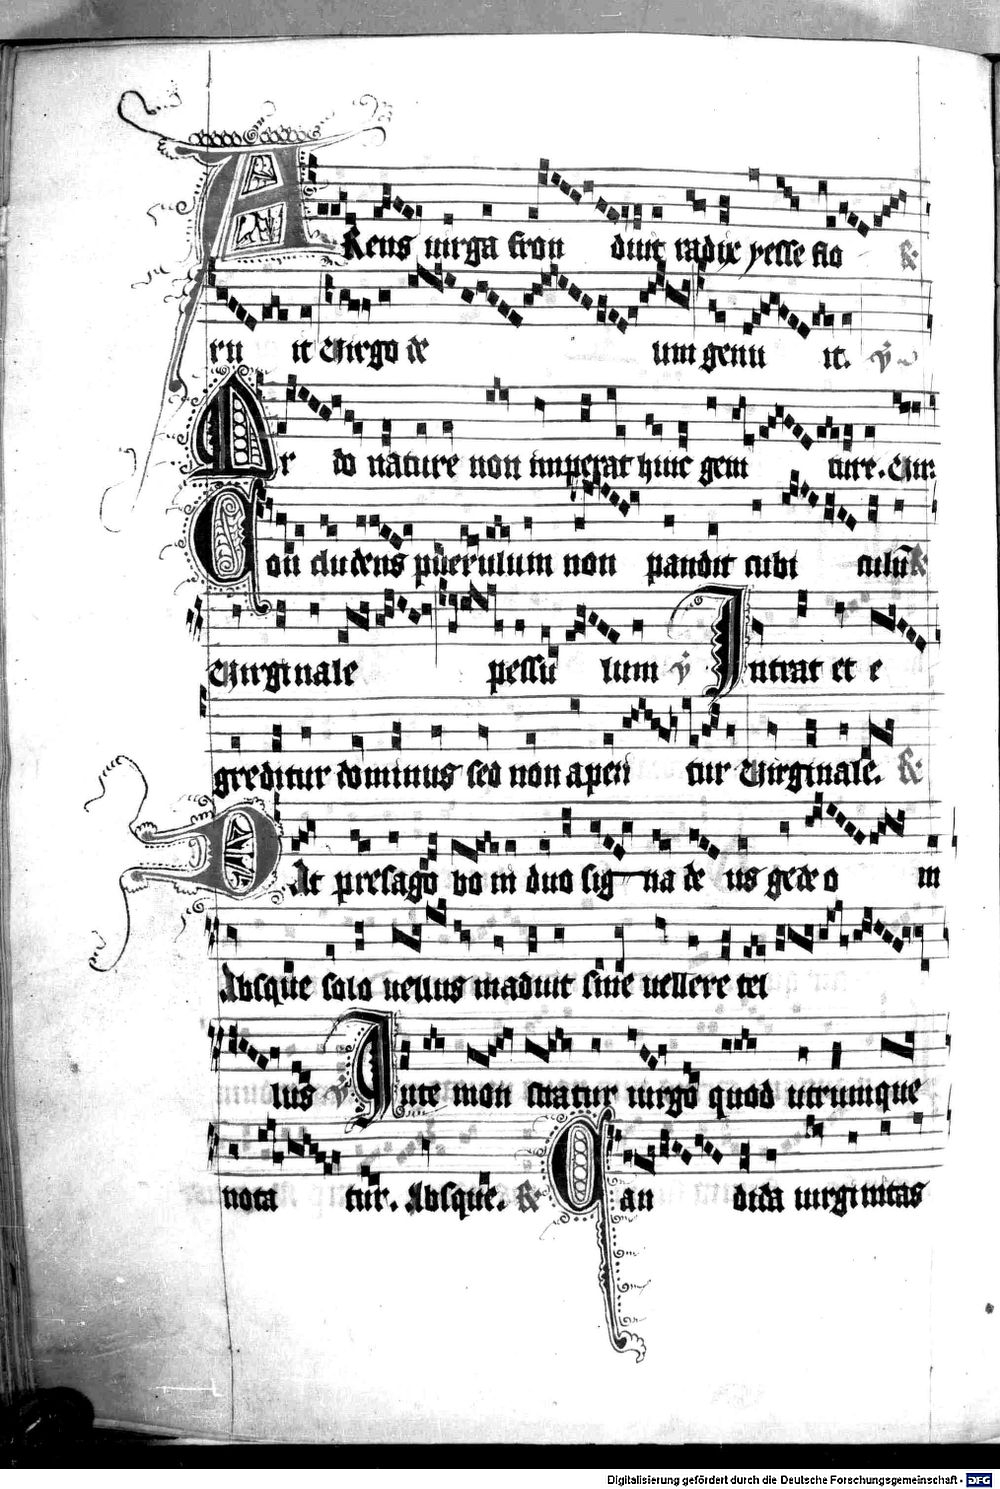 ARens uirga fron duit radix yesse flo
ru it Uirgo de um genu it. ỹ
Or do nature non imperat huic geni ture. Uir.
Con cludens puerulum non pandit cubi culum
Uirginale pessu lum ỹ Intrat et e
greditur dominus sed non aperi tur Uirginale.
Dat presago vo in duo sig na de us gede o m
Absque solo uellus maduit sine uellere tel
lus ỹ Inte mon stratur uirgo quod utrumque
nota tur. Absque. Can dida uirginitas
Digitalisierung gefördert durch die Deutsche Forschungsgemeinschaft - DFG